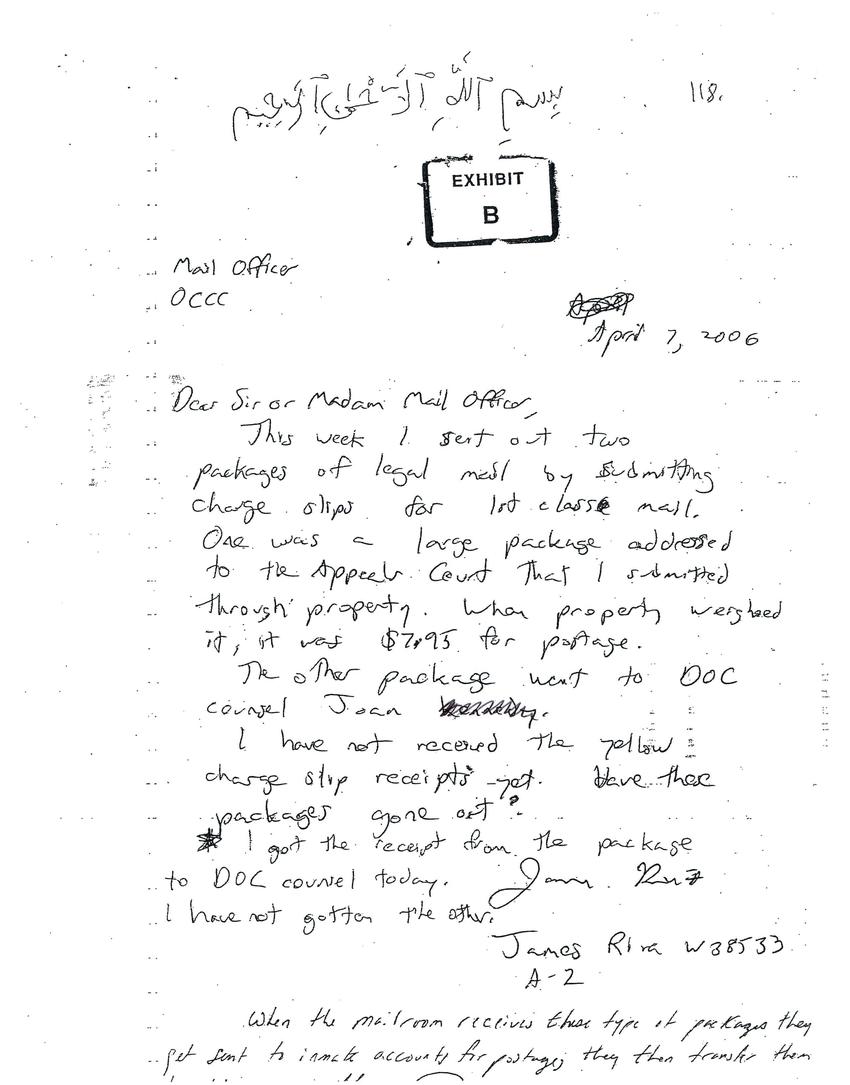 بِسْمِ اللَّهِ الرَّحْمَٰنِ الرَّحِيمِ
118.
EXHIBIT
B
Mail Officer
OCCC
April 7, 2006
Dear Sir or Madam Mail Officer,
This week I sent out two
packages of legal mail by submitting
charge slips for 1st class mail.
One was a large package addressed
to the Appeals Court That I submitted
through property. When property weighed
it, it was $7.95 for postage.
The other package went to DOC
counsel Joan
I have not received the yellow
charge slip receipts yet. Have these
packages gone out?
* I got the receipt from the package
to DOC counsel today.
I have not gotten the other.
James Riva W38533
A-2
When the mailroom receives these type of packages they
get sent to inmate accounts for postage, they then transfer them